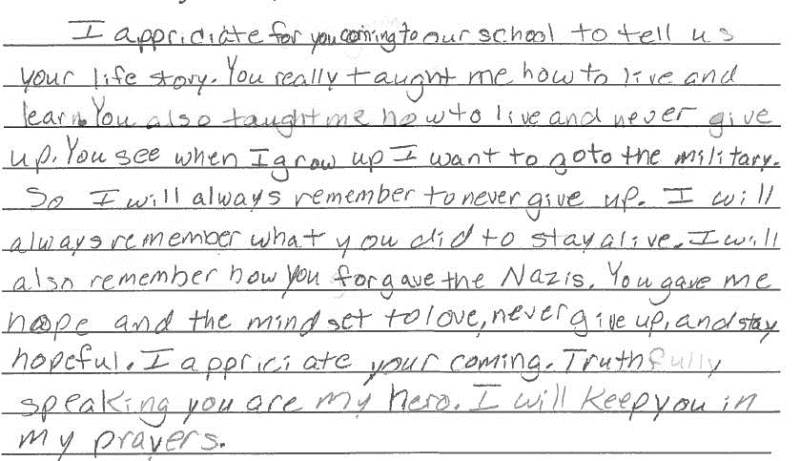 I appridiate for you coming to our school to tell us
your life story. You really taught me how to live and
learn. You also taught me how to live and never give
up. You see when I grow up I want to go to the military.
So I will always remember to never give up. I will
always remember what you did to stay alive. I will
also remember how you forgave the Nazis. You gave me
hope and the mind set to love, never give up, and stay
hopeful. I appriciate your coming. Truthfully
speaking you are my hero. I will keep you in
my prayers.